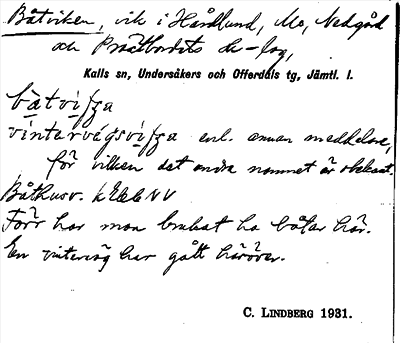 Båtviken, vik i Hårdlund, Mo, Nedgård
och Prästbordets
Kalls sn, Undersåkers och Offerdals tg, Jämtl. l.
båtvifja
vintervägsvifja enl. annan meddelare,
för vilken det andra namnet är obekant.
Båthusv.
Förr har man brukat ha båtar här.
En vinterväg har gått häröver.
C. LINDBERG 1931.